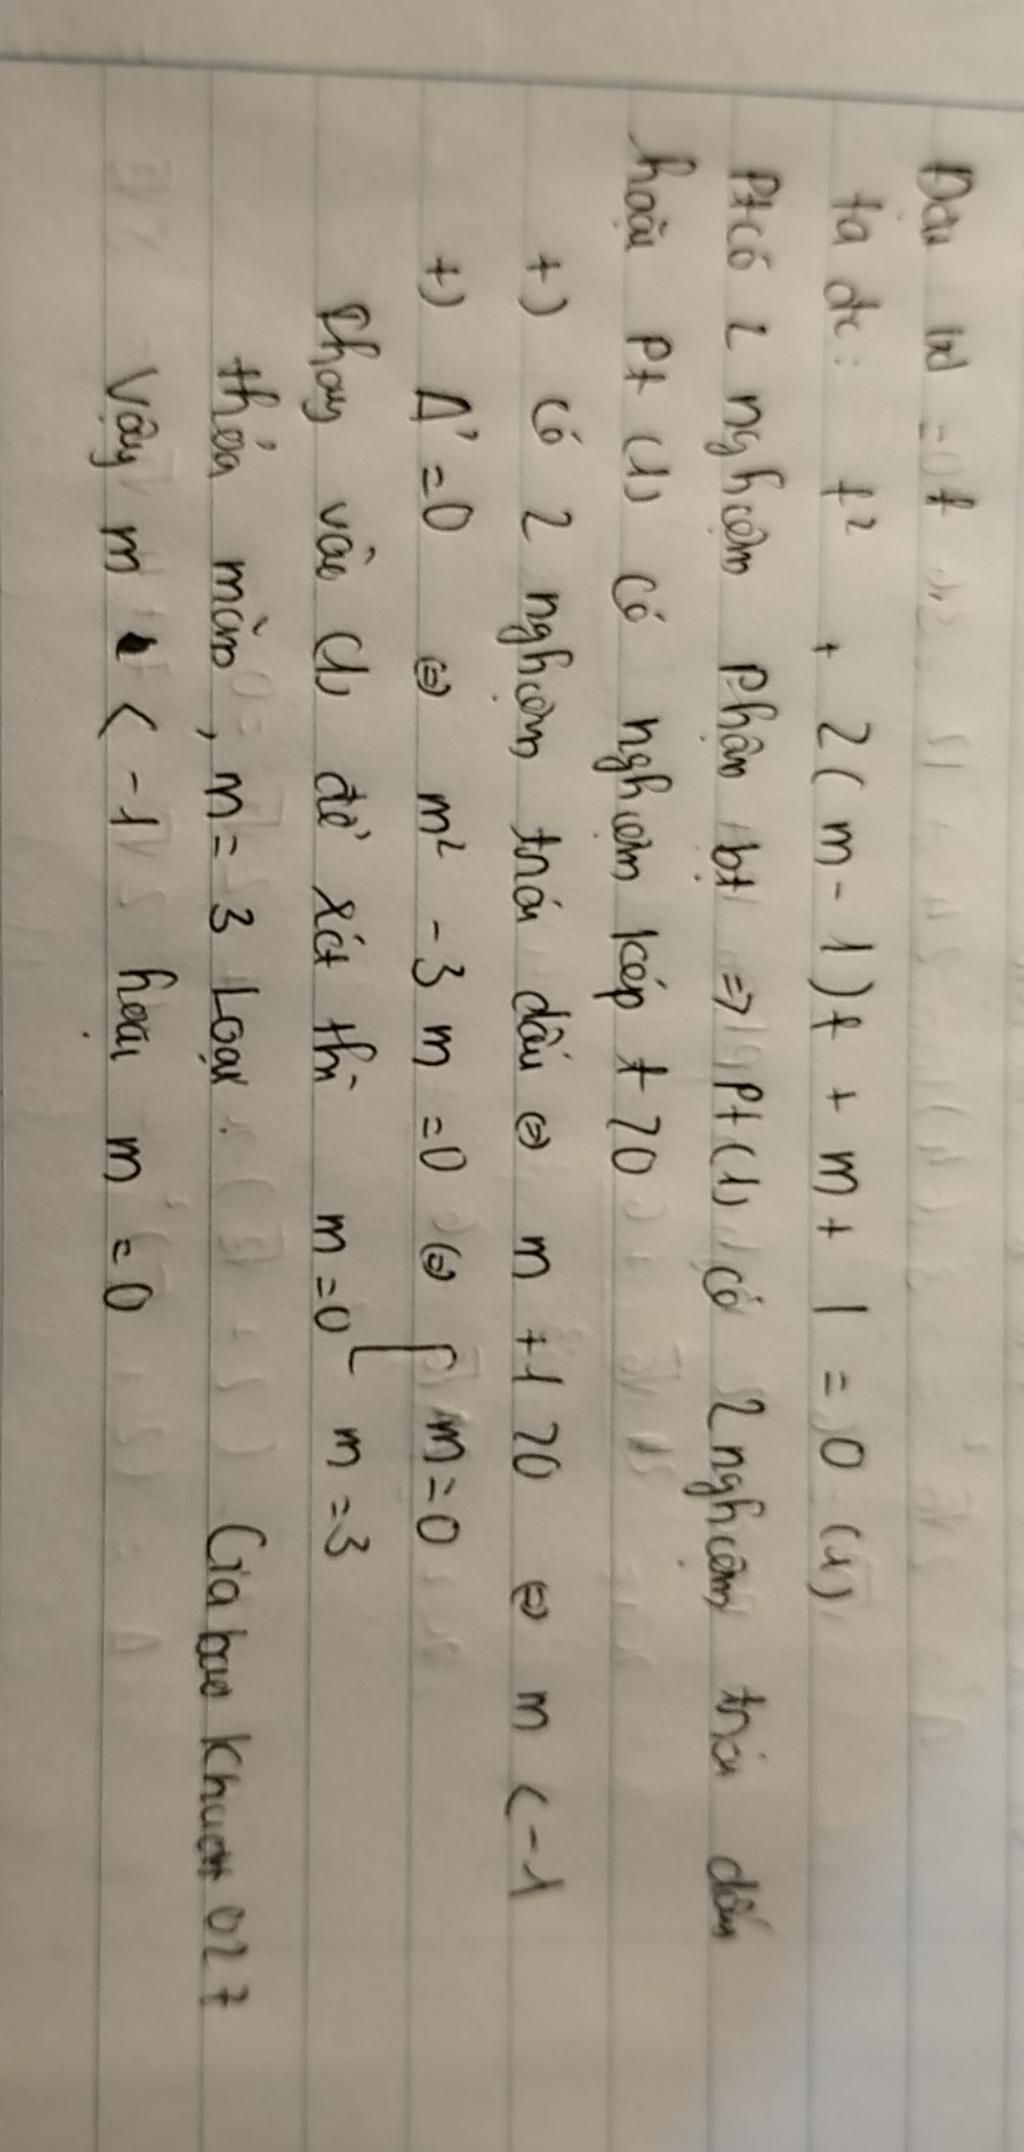 Đặt |x| = t
ta đc: t² + 2(m-1)t + m + 1 = 0 (1)
Pt có 2 nghiệm phân bt => Pt (1) có 2 nghiệm trái dấu
hoặc Pt (1) có nghiệm kép t >0
+) có 2 nghiệm trái dấu ⇔ m +1 >0 ⇔ m < -1
+) Δ' =0 ⇔ m² - 3m =0 ⇔ [ m=0
m =3
thay vào (1) để xét thì m=0
thỏa mãn, m=3 Loại.
Vậy m < -1 hoặc m =0
Gia bao khuat 027